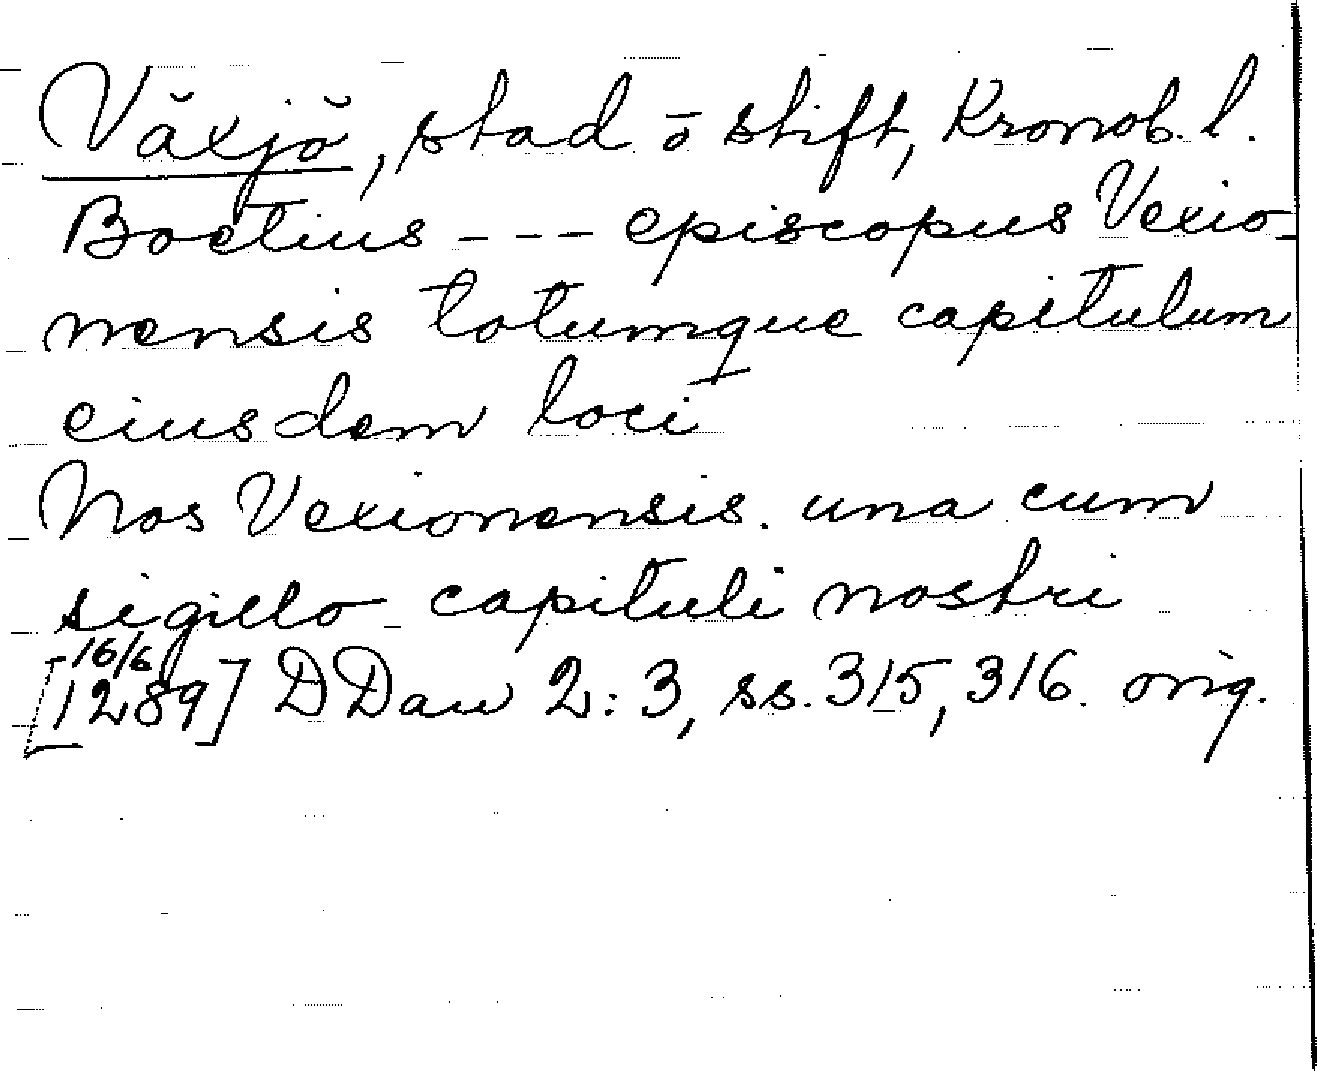 Växjö, stad o stift, Kronob. l.
Boetius - - - episcopus Vexio-
nensis totumque capitulum
eiusdem loci
Nos Vexionensis. una cum
sigillo capituli nostri
16/6
[1289] DDan 2: 3, ss. 315, 316. orig.